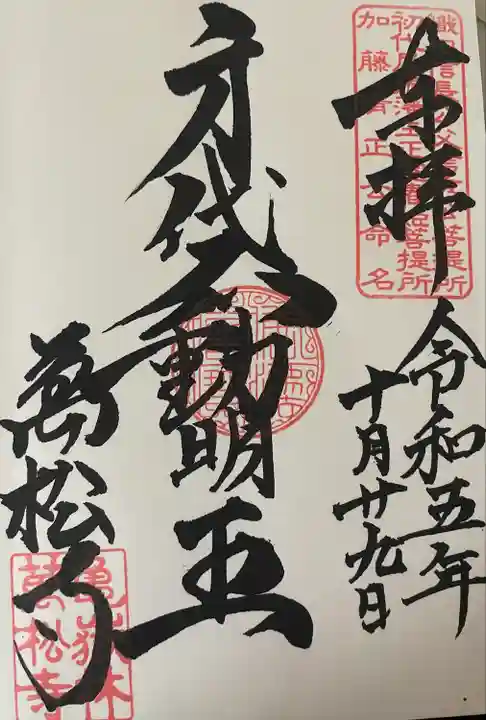 奉拝
令和五年
十月廿九日
織田信長公父信秀公菩提所
加藤清正公命名
身代不動明王
萬松寺
亀嶽林
萬松寺